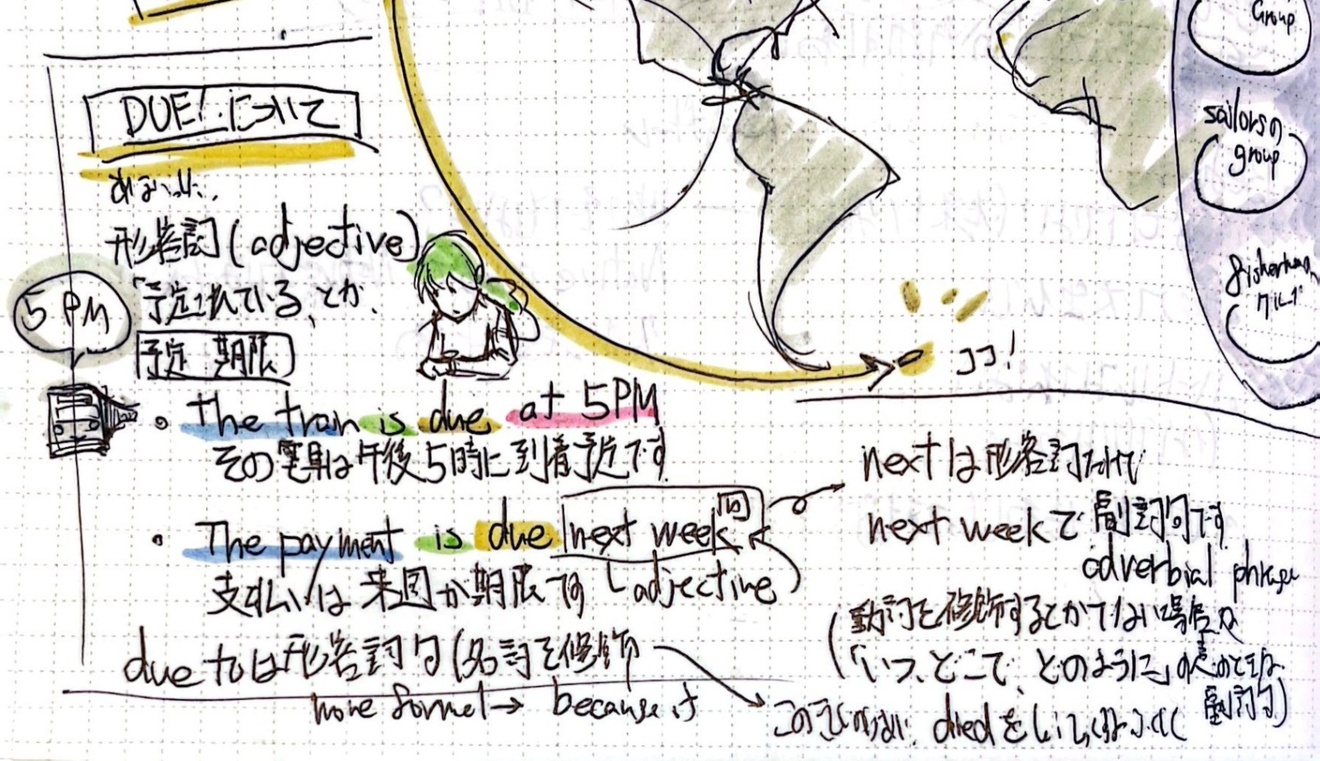 DUE!について
形容詞(adjective)
「予定されている」とか
予定 期限
5 PM
• The train is due at 5PM
その電車は午後5時に到着予定です
• The payment is due next week 句
支払いは来週が期限です adjective
due toは形容詞句(名詞を修飾
more formal→ because of
ココ!
nextは形容詞だけど
next weekで副詞句です
adverbial phrase
(動詞を修飾するとかでない場合は
「いつ、どこで、どのように」の意のときは
副詞句)
diedを
Group
sailorsの
group
fishermanグループ